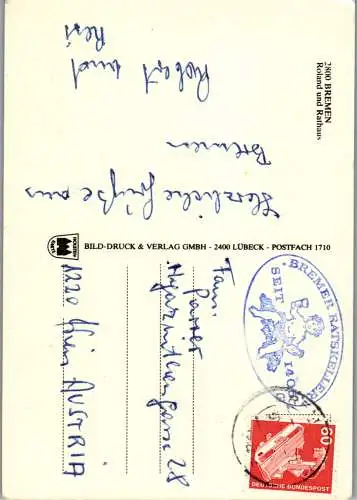 2800 BREMEN
Roland und Rathaus
Herzliche Grüße aus
Bremen
Robert und
Resi
HOLSTEN-
BILD-DRUCK & VERLAG GMBH - 2400 LÜBECK - POSTFACH 1710
· BREMER RATSKELLER ·
SEIT 1405
60
DEUTSCHE BUNDESPOST
Fam.
1220 Wien AUSTRIA